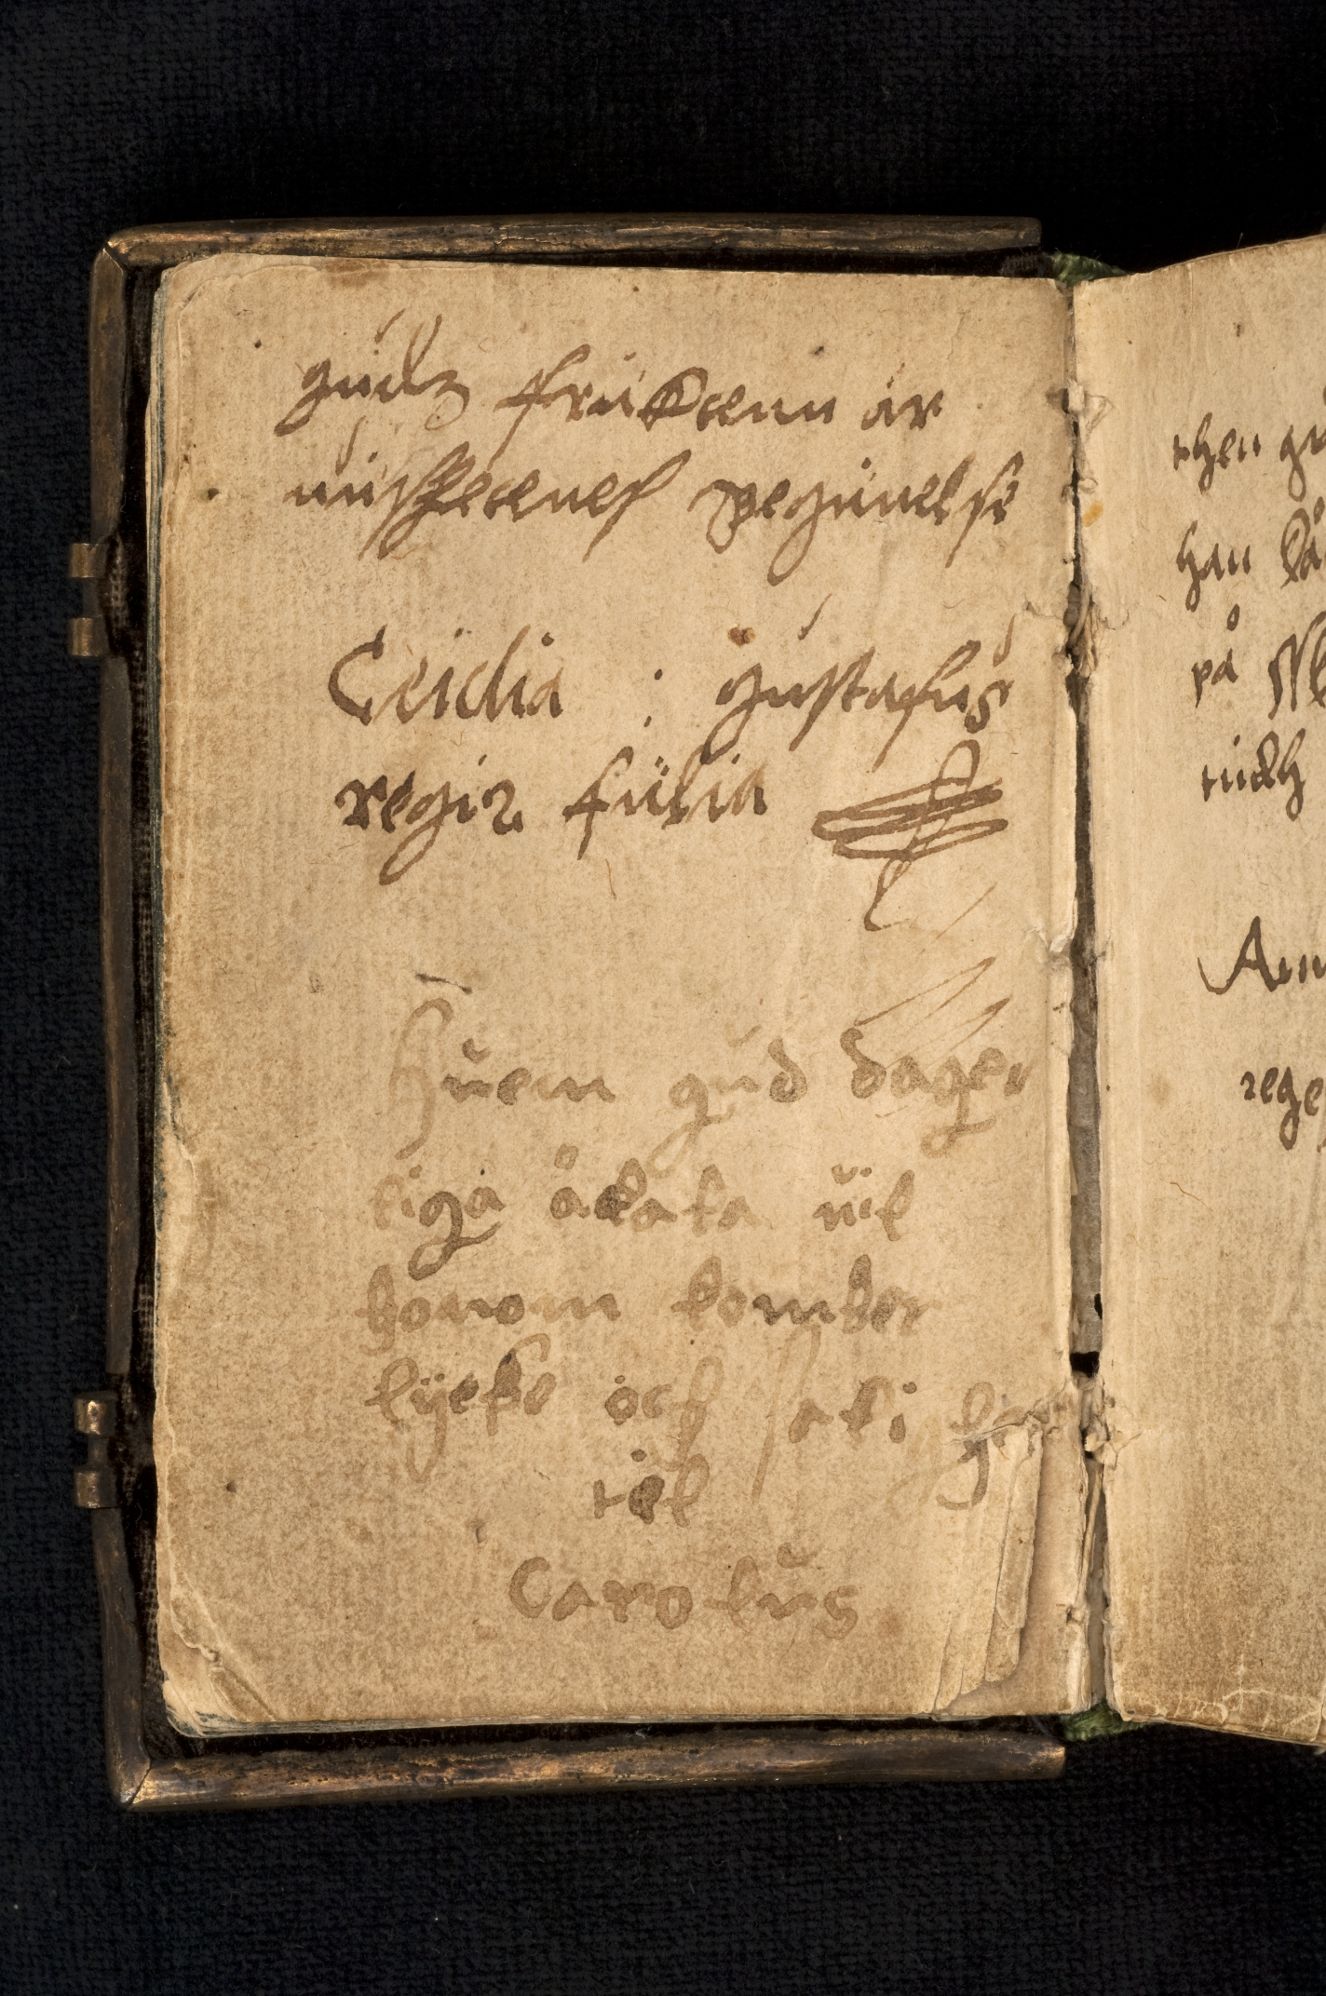 gudz fruktenn är
uisheteneſ begünelſe
Ceicilia : gustafus
regis fuͤlia
Huem gud dager
liga åkata uil
honom komber
lycke och salighe
tel
Carolus
then gu
han kå
på
tickh
Ann
rege